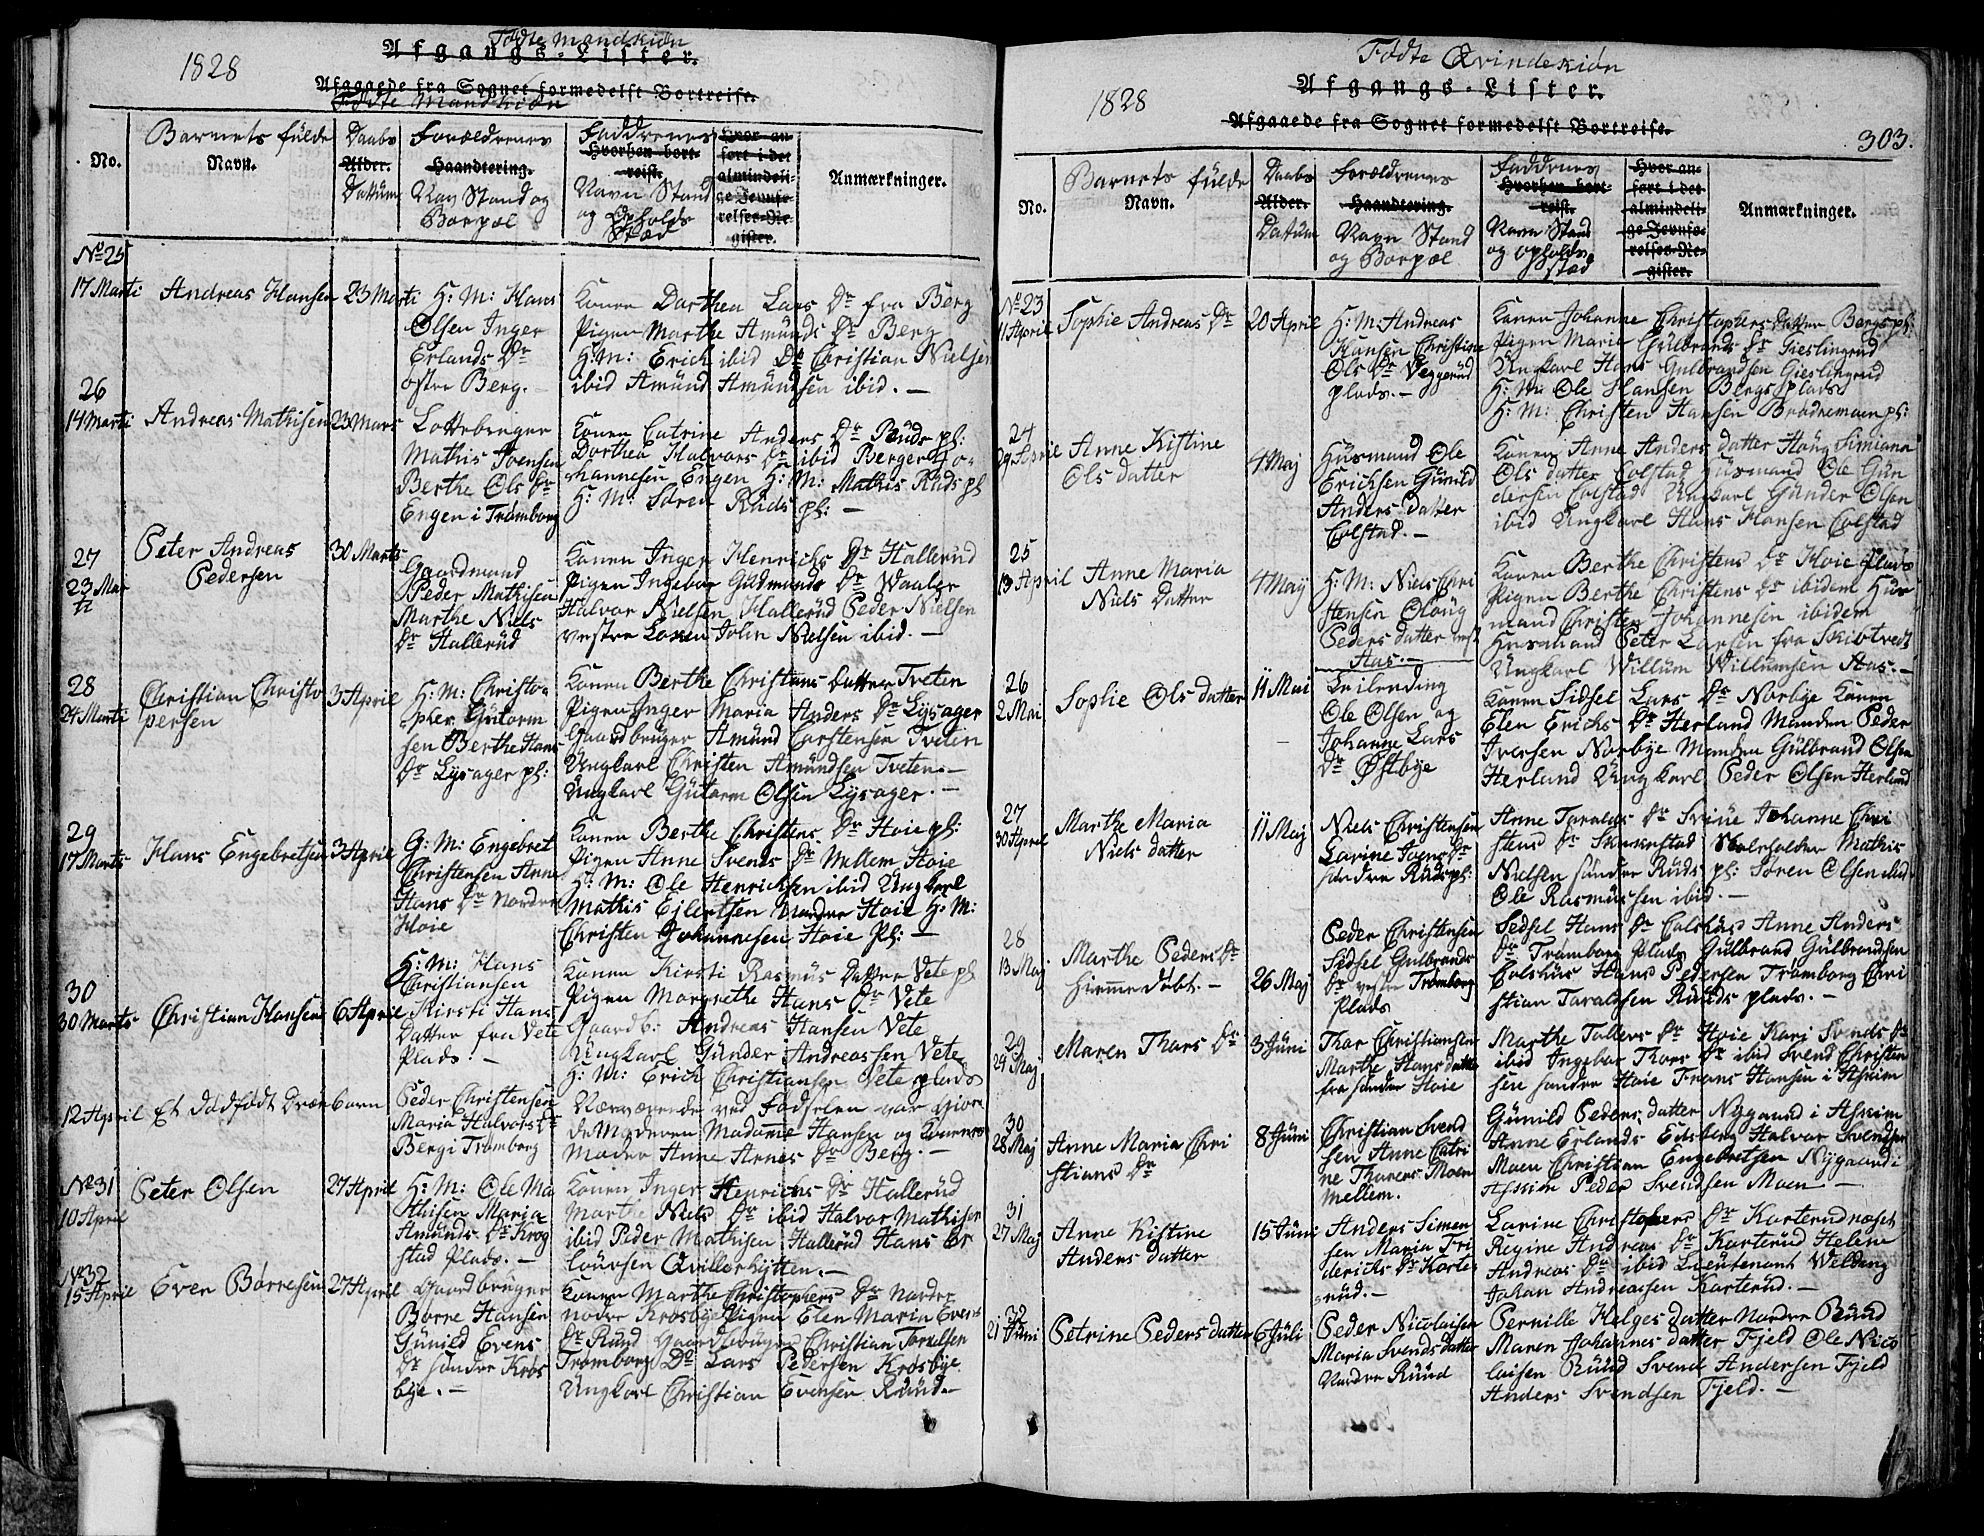 1828
Fødte Mandkiøn
Afgangs-Lister.
Afgaaede fra Sognet formedelst Bortreise.
Fødte Mandkiøn
No.
Barnets fulde
Navn.
Daabs
Alder.
Dattum
Forældrenes
Haandtering.
Nav Stand og
Boepæl
Faddrenes
Hvorhen bort-
reist.
Navn Stand
og Opholds
Stæd
Hvor an-
ført i det
almindeli-
ge Jevnfø-
relses-Re-
gister.
Anmærkninger.
No 25
17 Marti
Andreas Hansen
23 Marti
H: M: Hans
Olsen Inger
Erlands Dr
østre Berg.
Konen Dorthea Lars Dr fra Berg
Pigen Marthe Amunds Dr Berg
H: M: Erich ibid Do Christian Nielsen
ibid Amund Amundsen ibid. —
26
14 Marti
Andreas Mathisen
23 Mars
Mathis Ivensen
Berthe Ols Dr
Engen i Trømborg
Konen Catrine Anders Dr Ruds pl:
Dorthea Halvors Dr ibid Berger Jo-
hannesen Engen H: M: Mathis Ruds pl
H: M: Søren Ruds pl: —
27
23 Mar
ti
Peter Andreas
Pedersen
30 Marts
Gaardmand
Peder Mathisen
Marthe Niels
Dr Hallerud
Konen Inger Henrichs Dr Hallerud
Pigen Ingebor Gudmunds Dr Waaler
Halvor Nielsen Hallerud Peder Nielsen
vestre Loken John Nielsen ibid. —
28
24 Marti
Christian Christo
persen
3 April
H: M: Christo-
pher Gutorm
sen Berthe Hans
Dr Lysager pl:
Konen Berthe Christians Datter Tveten
Pigen Inger Maria Anders Dr Lysager
Gaardbruger Amund Carstensen Tvetin
Ungkarl Christen Amundsen Tveten. —
Ungkarl Gutorm Olsen Lysager. —
29
17 Marts
Hans Engebretsen
3 April
G: M: Engebret
Christensen Anne
Hans Dr Nordre
Hoie
Konen Berthe Christens Dr Hoie pl:
Pigen Anne Svends Dr Mellem Hoie
H: M: Ole Henrichsen ibid Ungkarl
Mathis Ejlertsen Nordre Hoie H: M:
Christen Johannesen Hoie Pl: —
30
30 Marts
Christian Hansen
6 April
H: M: Hans
Christiansen
Kirsti Hans
Datter fra Vete
Plads. —
Konen Kirsti Rasmus Datter Vete pl
Pigen Margrethe Hans Dr Vete
Gaardb: Andreas Hansen Vete
Ungkarl Gunder Andreassen Vete
H: M: Erich Christiansen Vete plads
12 April
Et dødfødt Drængebarn
Peder Christensen
Maria Halvors Dr
Berg i Trømborg
Nærværende ved Fødselen var Gior
de Moderen Madame Hansen og Koernes
Moder Anne Arnes Dr Berg. —
No 31
10 April
Peter Olsen
27 April
H: M: Ole Ma
thisen Maria
Amunds Dr Krog
stad Plads. —
Konen Inger Henrichs Dr Hallerud
Marthe Niels Dr ibid Halvor Mathisen
ibid Peder Mathisen Hallerud Hans Or
lounsen Qvillerhytten. —
No 32
15 April
Even Børresen
27 April
Gaardbruger
Børne Hansen
Gunild Evens
Dr søndre Kros
bye. —
Konen Marthe Christophers Dr Nordre
nodre Krosbye Pigen Elen Maria Evens
Dr Ruud Gaardbruger Christian Torelsen
Trømborg Do Lars Pedersen Krosbye
Ungkarl Christian Evensen Ruud. —
1828
Fødte Qvindekiøn
Afgangs-Lister.
Afgaaede fra Sognet formedelst Bortreise.
303.
No.
Barnets fulde
Navn.
Daabs
Alder.
Datum
Forældrenes
Haandtering.
Navn Stand
og Boepæl
Faddrenes
Hvorhen bort-
reist.
Navn Stand
og Opholds
stæd
Hvor an-
ført i det
almindeli-
ge Jevnfø-
relses-Re-
gister.
Anmærkninger.
No 23
11 April
Sophie Andreas Dr
20 April
H: M: Andreas
Hansen Christine
Ols Dr Veggerud
plads. —
Konen Johanne Christophers Datter Bergs pl:
Pigen Marie Gulbrands Dr Gieslingrud
Ungkarl Hans Gulbrandsen Gieslingrud
H: M: Ole Hansen Bergs plads
H: M: Christen Hansen Brødremoen pl:
24
29 April
Anne Kistine
Ols datter
4 Maj
Husmand Ole
Erichsen Gunild
Anders datter
Colstad. —
Konen Anne Anders datter Houg Simiana
Ols datter Colstad Husmand Ole Gun
dersen Colstad Ungkarl Gunder Olsen
ibid Ungkarl Hans Hansen Colstad
25
13 April
Anne Maria
Niels Datter
4 Maij
H: M: Niels Chri
stensen Oloug
Peders datter vest
Aas. —
Konen Berthe Christens Dr Hoie Plads
Pigen Berthe Christens Dr ibidem Hus
mand Christen Johannesen ibidem
Husmand Peter Larsen fra Skibtvedt
Ungkarl Willum Willumsen Aas. —
26
2 Mai
Sophie Ols datter
11 Mai
Leilending
Ole Olsen og
Johanne Lars
Dr Østbye
Konen Sidsel Lars Dr Norbye Konen
Elen Erichs Dr Herland Manden Peder
Iversen Norbye Manden Gulbrand Olsen
Herland Ungkarl Peder Olsen Herland
27
30 April
Marthe Maria
Niels datter
11 Maj
Niels Christensen
Larine Ivens Dr
søndre Ruds pl:
Anne Taralds Dr Sviue Johanne Chri
stens Dr Skakestad Mathis
Nielsen søndre Ruds pl: Søren Olsen ibid
Ole Rasmussen ibid. —
28
13 Maj
Marthe Peders Dr
Hiemmedøbt. —
26 Maj
Peder Christensen
Sidsel Gulbrands
Dr vestre Trømborg
Plads
Sedsel Hans Dr Colshus Anne Anders
Dr Trømborg Plads Gulbrand Gulbrandsen
Colshus Hans Pedersen Trømborg Chri
stian Taraldsen Ruuds plads. —
29
29 Maj
Maren Thors Dr
3 Juni
Thor Christiansen
Marthe Hans datter
fra søndre Hoie
Marthe Tollers Dr Hoie Kari Svends Dr
ibid Ingebor Thors Dr ibid Svend Christian
sen søndre Hoie Frans Hansen i Askim
30
28 Maj
Anne Maria Chri
stians Dr
8 Juni
Christian Svend
sen Anne Catri
ne Thorers Moen
mellem.
Gunild Peders datter Nygaard i Askim
Anne Erlands Eidsberg Halvor Svendsen
Moen Christian Engebretsen Nygaard i
Askim Peder Svendsen Moen —
31
27 Maj
Anne Kistine
Anders datter
15 Juni
Anders Simen
sen Maria Fri
derichs Dr Karte
rud. —
Larine Christophers Dr Karterudnæset
Regine Andreas Dr Karterud Helene
Andreas Dr ibid Lieutenant Welding
Johan Andreassen Karterud. —
32
21 Juni
Petrine Peders datter
6 Juli
Peder Nicolaisen
Maria Svends datter
Nordre Ruud
Pernille Helges datter Nordre Ruud
Maren Johannes datter Fjeld Ole Nico
laisen Ruud Svend Andersen Fjeld
Anders Svendsen Fjeld. —